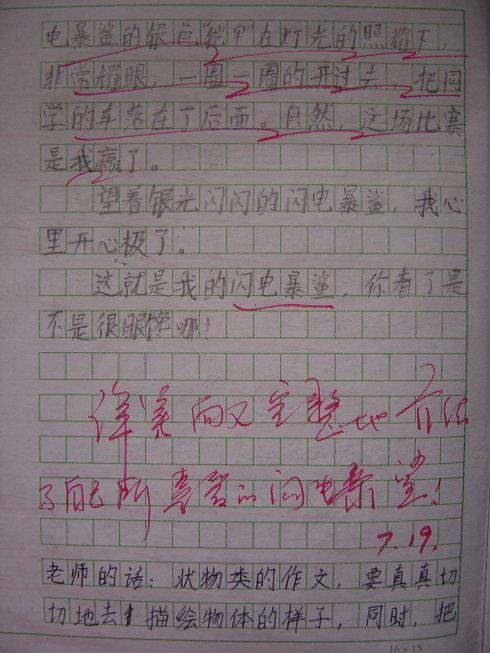 电暴鲨的银色"铠甲"在灯光的照耀下，
非常耀眼，一圈一圈的开过去，把同
学的车落在了后面。自然，这场比赛
是我赢了。
望着银光闪闪的闪电暴鲨，我心
里开心极了。
这就是我的闪电暴鲨，你看了是
不是很眼馋哪！
详实而又完整地介绍
了自己所喜爱的闪电暴鲨！
7.19.
老师的话：状物类的作文，要真真切
切地去描绘物体的样子，同时，把
16×15